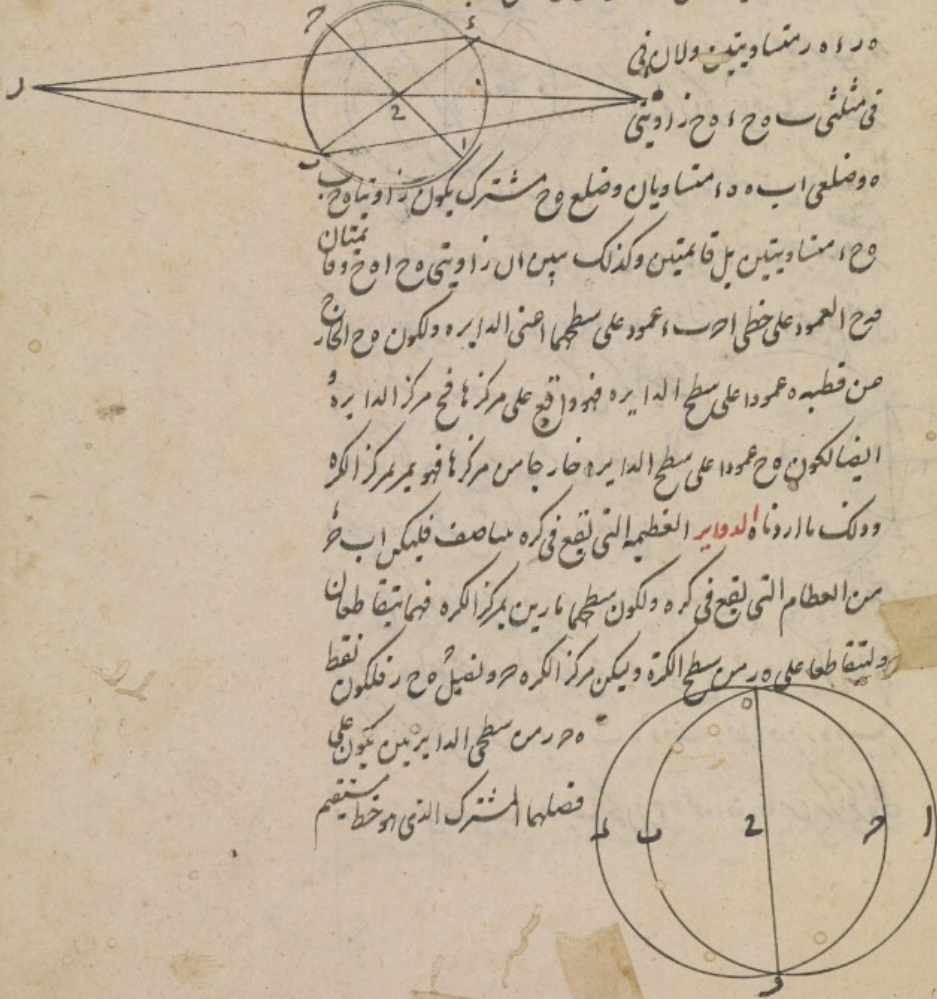 ه ر ء ه ر متساويتين ولان في
في مثلثي ب ه ح ء ه ح زاويتي
ه وضلعي ه ه ء متساويان وضلع ه ح مشترك يكون زاويتا ه ح ب
ه ح ء متساويتين بل قايمتين وكذلك نبين ان زاويتي ه ح ا ه ح قايمتان
العمود على خطي ا ح ب ء عمود على سطحهما اعنى الدايره ولكون ه ح الخارج
من قطبه ه عمودا على سطح الدايره فهو واقع على مركزها فح مركز الدايره و
ايضا لكون ه ح عمودا على سطح الدايره خارجا من مركزها فهو يمر بمركز الكره
وذلك ما اردناه الدواير العظيمه التي تقع في كره تتناصف فليكن ا ب ح ء
من العظام التي تقع في كره ولكون سطحهما مارين بمركز الكره فهما يتقاطعان
وليتقاطعا على ه ر من سطح الكرة وليكن مركز الكره ح ونصل ه ح ح ر فلكون نقط
ه ح ر من سطحي الدايرتين يكون على
فصلهما المشترك الذى هو خط مستقيم
ح
ء
ر
ه
ح
ب
ا
ه
ء
ب
ح
ح
ا
ر